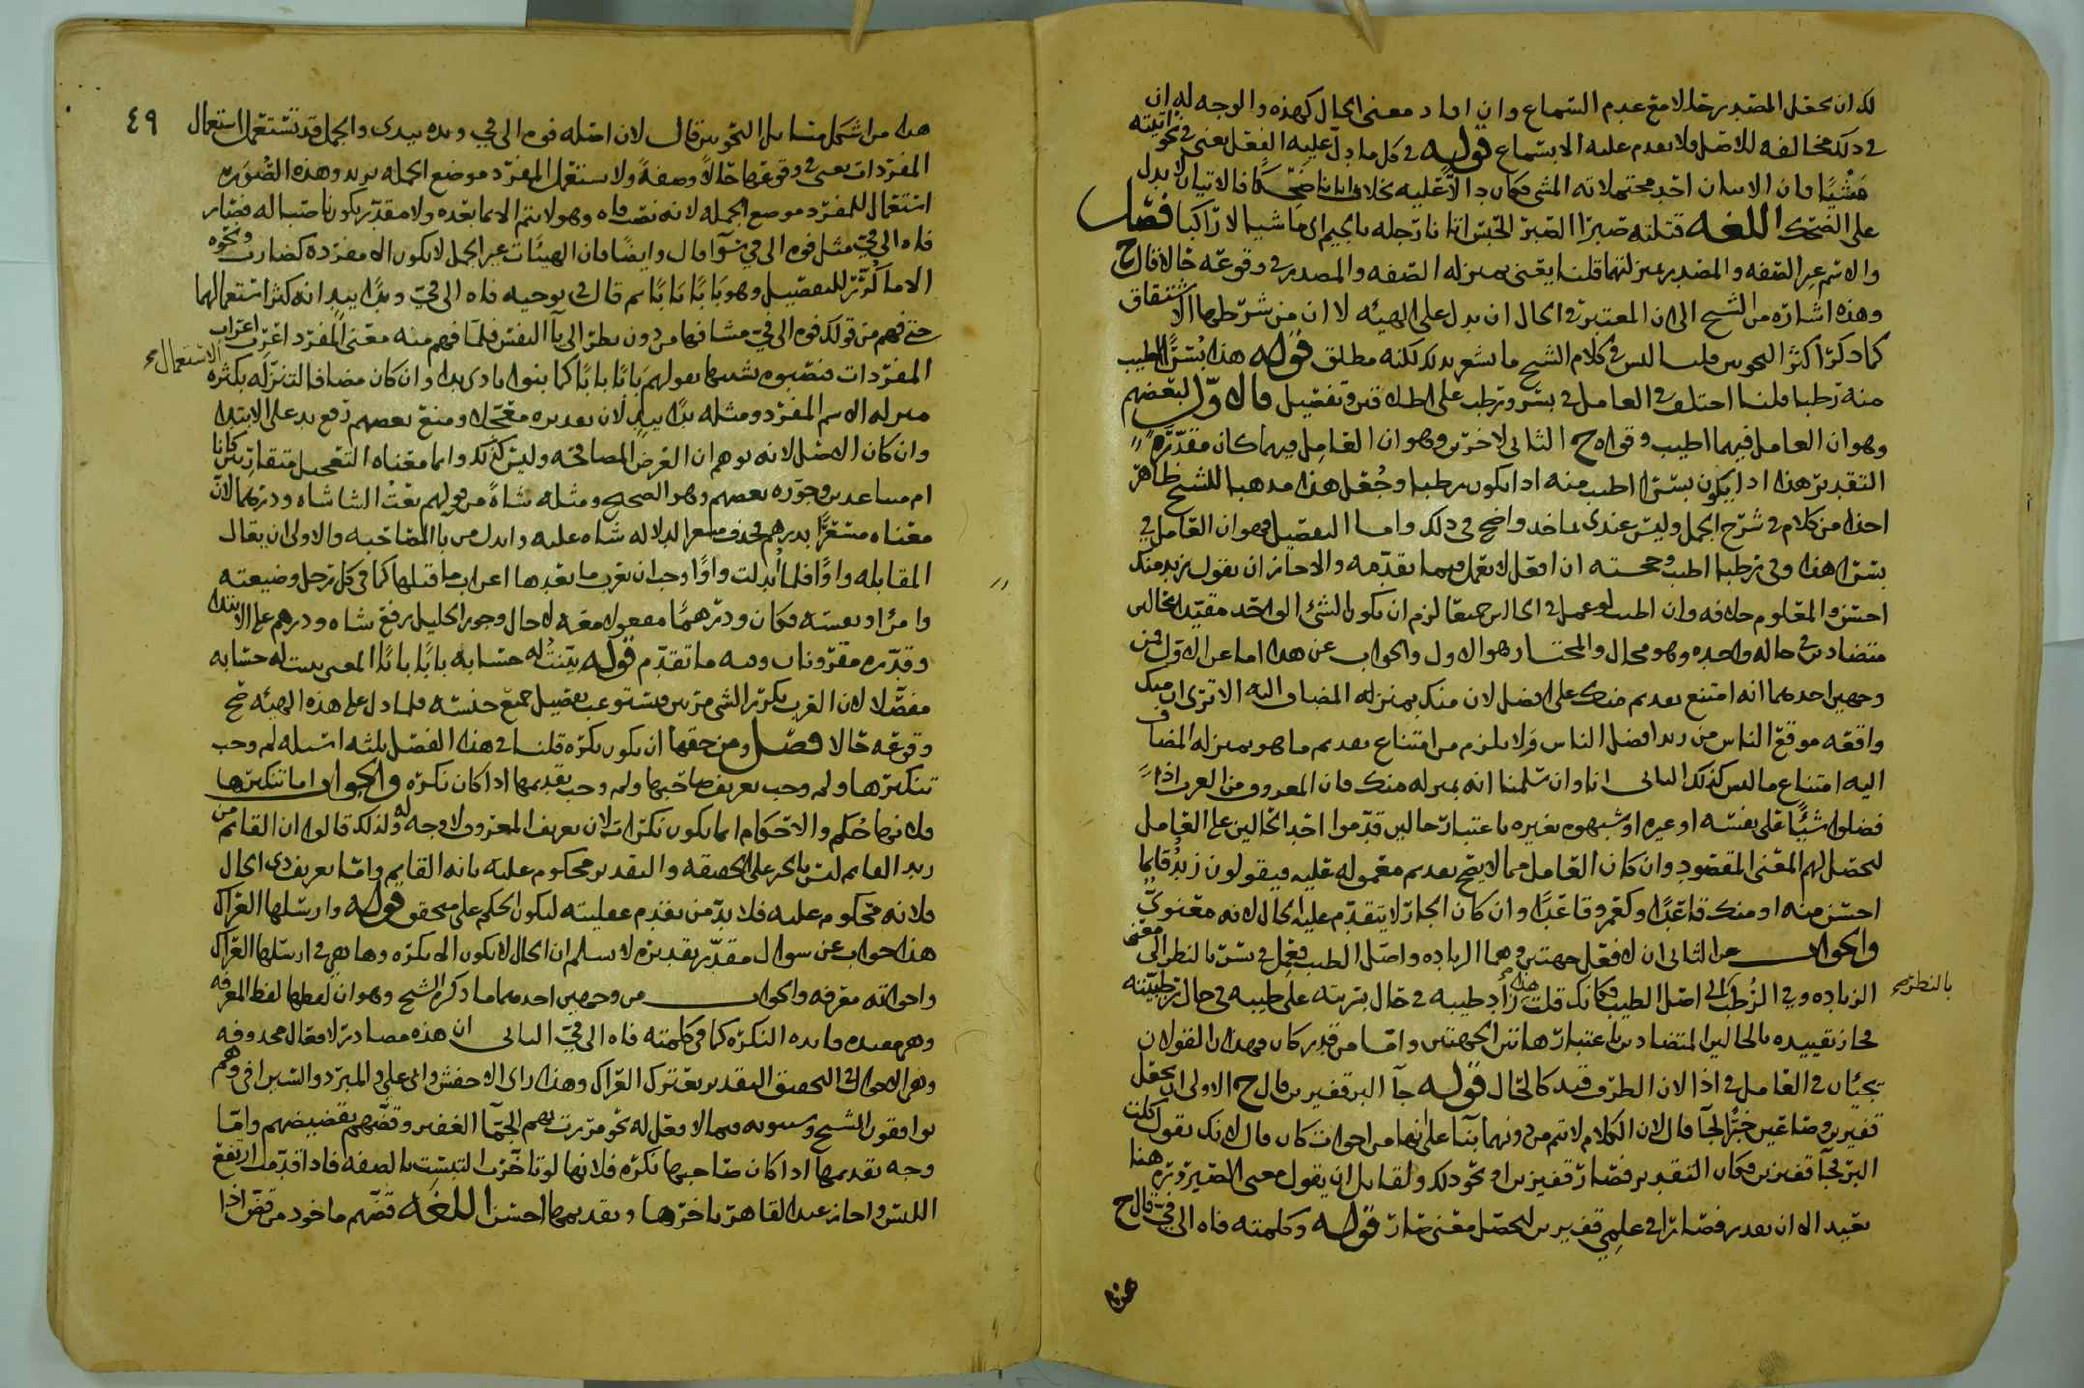 لك ان يجعل المصدر حالا مع عدم السماع وان افاد معنى الحال كهذه والوجه له ان
في ذلك مخالفة للاصل ولا يقدم عليه الا بسماع قوله في كل ما دل عليه الفعل يعني في نحو اتيته
مشيا فان الاتيان احد محتملاته المشي فكان دالا عليه بخلاف اتانا ضحكا فالاتيان لا يدل
على الضحك اللغة قتلته صبرا الصبر الحبس اتانا رجله بالجيم اي ماشيا لا راكبا فصل
والاسم غير الصفة والمصدر بمنزلتهما قلنا يعني بمنزلة الصفة والمصدر في وقوعه حالا قال ح
وهذه اشارة من الشيخ الى ان المعتبر في الحال ان يدل على الهيئة لا ان من شرطها الاشتقاق
كما ذكر اكثر النحويين قلنا ليس في كلام الشيخ ما يشعر بذلك لكنه مطلق قوله هذا بسرا اطيب
منه رطبا قلنا اختلف في العامل في بسر ورطب على اطلاقين وتفصيل فالاول لبعضهم
وهو ان العامل فيهما اطيب وقواه ح الثاني لاخرين وهو ان العامل فيهما كان مقدرة
التقدير هذا اذا يكون بسرا اطيب منه اذا يكون رطبا وجعل هذا مذهبا للشيخ ظاهر
اخذا من كلام في شرح الجمل وليس عندي بماخذ واضح في ذلك واما التفصيل فهو ان العامل في
بسرا هذا وفي رطبا اطيب وحجته ان افعل لا يعمل فيما تقدمه والا جاز ان تقول زيد منك
احسن والمعلوم خلافه وان اطيب لو عمل في الحالين جميعا لزم ان يكون الشي الواحد مقيدا بحالين
متضادين في حالة واحدة وهو محال والمختار هو الاول والجواب عن هذا اما عن الاول فمن
وجهين احدهما انه امتنع تقديم منك على افضل لان منك بمنزلة المضاف اليه الا ترى ان منك
واقعة موقع الناس من زيد افضل الناس ولا يلزم من امتناع تقديم ما هو بمنزلة المضاف
اليه امتناع ما ليس كذلك الثاني انا وان سلمنا انه بمنزلة منك فان المعروف من العرب اذا
فضلوا شيئا على نفسه او غيره او شبهوه بغيره باعتبار حالين قدموا احد الحالين على العامل
ليحصل لهم المعنى المقصود وان كان العامل مما لا يصح تقديم معموله عليه فيقولون زيد قائما
احسن منه او منك قاعدا وكعمرو قاعدا وان كان الجار لا يتقدم عليه الحال لانه معنوي
والجواب عن الثاني ان لافعل جهتين وهما الزيادة واصل الطيب فعمل في بسر بالنظر الى معنى
الزيادة وفي الرطب الى اصل الطيب فكانك قلت هذا زاد طيبه في حال بسريته على طيبه في حال رطبيته
بالنظر صح
فجاز تقييده بالحالين المتضادين باعتبار هاتين الجهتين واما من قدر كان فهذان القولان
يجيان في العامل في اذا لان الظرف قيد كالحال قوله جاء البر قفيزين قال ح الاولى ان يجعل
قفيزين وصاعين خبرا لجاء قال لان الكلام لا يتم من دونهما بناء على انها من اخوات كان قال لانك تقول كلت
البر فجاء قفيزين فكان التقدير فصار قفيزين او نحو ذلك ولقايل ان يقول معنى الصيرورة هنا
بعيد الا ان يقدر فصار في علمي قفيزين ليحصل معنى صار قوله وكلمته فاه الى في قال ح
هذا
٤٩
هذا من اشكل مسايل النحويين قال لان اصله فوه الى في ويده بيدي والجمل قد تستعمل استعمال
المفردات يعني في وقوعها حالا وصفة ولا يستعمل المفرد موضع الجملة يريد وهذه الصورة
استعمال للمفرد موضع الجملة لانه نصب فاه وهو لا يتم الا بما بعده ولا مقدر يكون ناصبا له فصار
فاه الى في مثل فوه الى في سوا قال وايضا فان الهيئات غير الجمل لا يكون الا مفردة كضارب ونحوه
الا ما كرر للتفصيل وهو بابا بابا ثم قال في توجيه فاه الى في ويدا بيد انه كثر استعمالها
حتى فهم من قولك فوه الى في مشافها من دون نظر الى باء النفس فلما فهم منه معنى المفرد اعرب اعراب
المفردات فنصبوه تشبيها بقولهم بابا بابا كما بنوا بادي بدا وان كان مضافا لتنزله بكثرة الاستعمال صح
منزلة الاسم المفرد ومثله يدا بيد لان تقديره معجلا ومنع بعضهم رفع يد على الابتدا
وان كان الاصل لانه يوهم ان الغرض المصافحة وليس كذلك وانما معناه التعجيل متقاربين كانا
ام متباعدين وجوزه بعضهم وهو الصحيح ومثله شاة من قولهم بعت الشا شاة ودرهما لان
معناه مسعرا بدرهم فحذف مسعرا لدلالة شاه عليه وابدل من باء المصاحبة والاولى ان يقال
المقابلة واوا فلما ابدلت واوا وجب ان يعرب ما بعدها اعراب ما قبلها كما في كل رجل وضيعته
وامرا ونفسه فكان ودرهما مفعولا معه لا حال وجوز الخليل رفع شاه ودرهم على الابتدا
وقدره مقرونان وفيه ما تقدم قوله بينت له حسابه بابا بابا المعنى بينت له حسابه
مفصلا لان العرب تكرر الشي مرتين فتستوعب تفصيل جميع جنسه فلما دل على هذه الهيئة صح
وقوعه حالا فصل ومن حقها ان يكون نكرة قلنا في هذا الفصل ثلثة اسيلة لم وجب
تنكيرها ولم وجب تعريف صاحبها ولم وجب تقديمها اذا كان نكرة والجواب اما تنكيرها
فلانها حكم والاحكام انما يكون نكرات لان تعريف المعروف لا وجه له ولذلك قالوا ان القائم من
زيد القائم ليس بالخبر على الحقيقة والتقدير محكوم عليه بانه القايم واما تعريف ذي الحال
فلانه محكوم عليه فلا بد من تقدم عقليته ليكون الحكم على محقق قوله وارسلها العراك
هذا جواب عن سوال مقدر تقديره لا نسلم ان الحال لا يكون الا نكرة وها هي في ارسلها العراك
واخواته معرفة والجواب من وجهين احدهما ما ذكره الشيخ وهو ان لفظها لفظ المعرفة
وهي مفيدة فايدة النكرة كما في كلمته فاه الى في الثاني ان هذه مصادر لافعال محذوفة
وهي الاحوال في التحقيق التقدير تعترك العراك وهذا راي الاخفش وابي علي والمبرد والسيرافي وهم
يوافقون الشيخ وسيبويه فيما لا فعل له نحو مررت بهم الجماء الغفير وقضهم بقضيضهم واما
وجه تقديمها اذا كان صاحبها نكرة فلانها لو تاخرت التبست بالصفة فاذا قدمت ارتفع
اللبس واجاز عبد القاهر تاخرها وتقديمها احسن اللغة قضهم ماخوذ من قض اذا